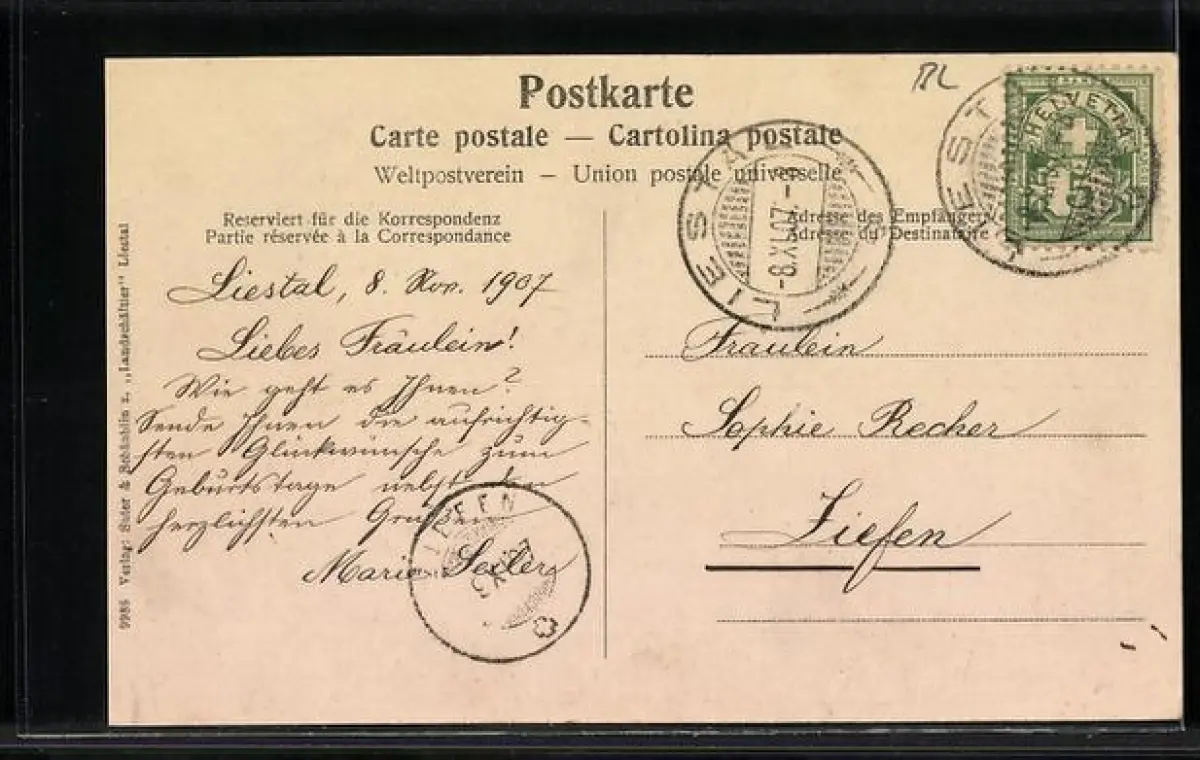 Postkarte
Carte postale — Cartolina postale
Weltpostverein – Union postale universelle
BL
HELVETIA
5
LIESTAL
-8.XI.07.-
LIESTAL
Reserviert für die Korrespondenz
Partie réservée à la Correspondance
Adresse des Empfängers
Adresse du Destinataire
Liestal, 8. Nov. 1907
Liebes Fräulein!
Wie geht es Ihnen?
Sende Ihnen die aufrichtig-
sten Glückwünsche zum
Geburtstage nebst den
herzlichsten Grüßen
Marie Seiler
Fräulein
Sophie Recher
Ziefen
ZIEFEN
9986 Verlag: Suter & Schäublin z. „Landschäftler" Liestal